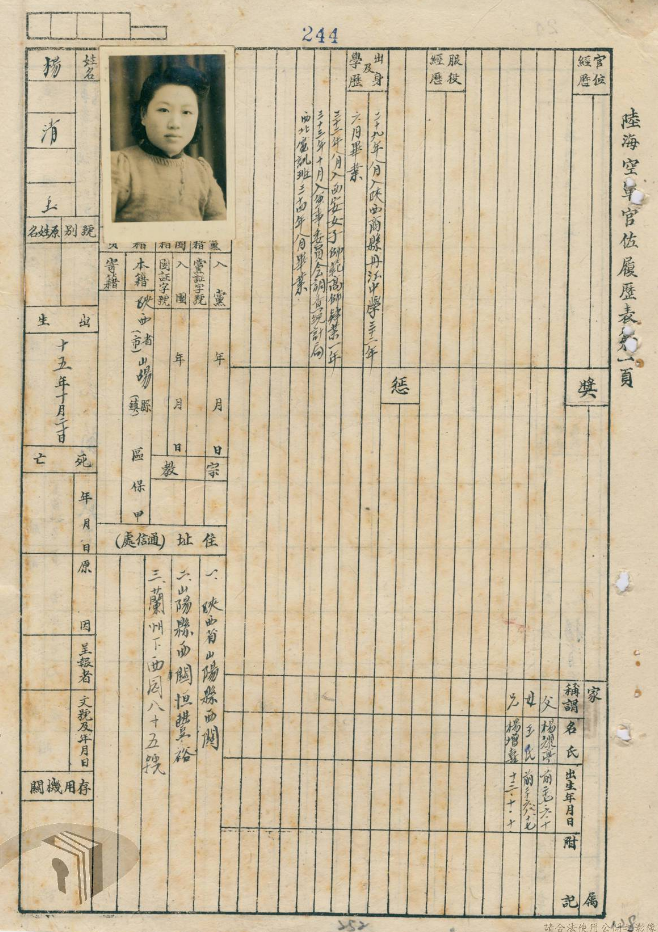 244
陸海空軍官佐履歷表第一頁
官位
經歷
服役
經歷
出身
及
學歷
二十九年八月入陝西商縣丹江中學三十二年
六月畢業
三十二年八月入西安女子師範高師肄業一年
三十三年十月入軍事委員會調查統計局
西北電訊班三十四年八月畢業
獎
懲
家
屬
稱謂
名氏
出生年月日
附
記
父
母
王氏
兄
十三、十、十
姓名
楊清
別號
原姓名
出生
十五年十月二十日
死亡
年月日
原因
呈報者
文號及年月日
存用機關
黨籍
入黨
年月日
黨證字號
團籍
入團
年月日
團証字號
籍貫
本籍
陝西省(市)山陽縣(鎮)
區保甲
寄籍
宗教
住址(通信處)
一、陝西省山陽縣西關
二、山陽縣西關恒豐裕
三、蘭州下西園八十五號
252